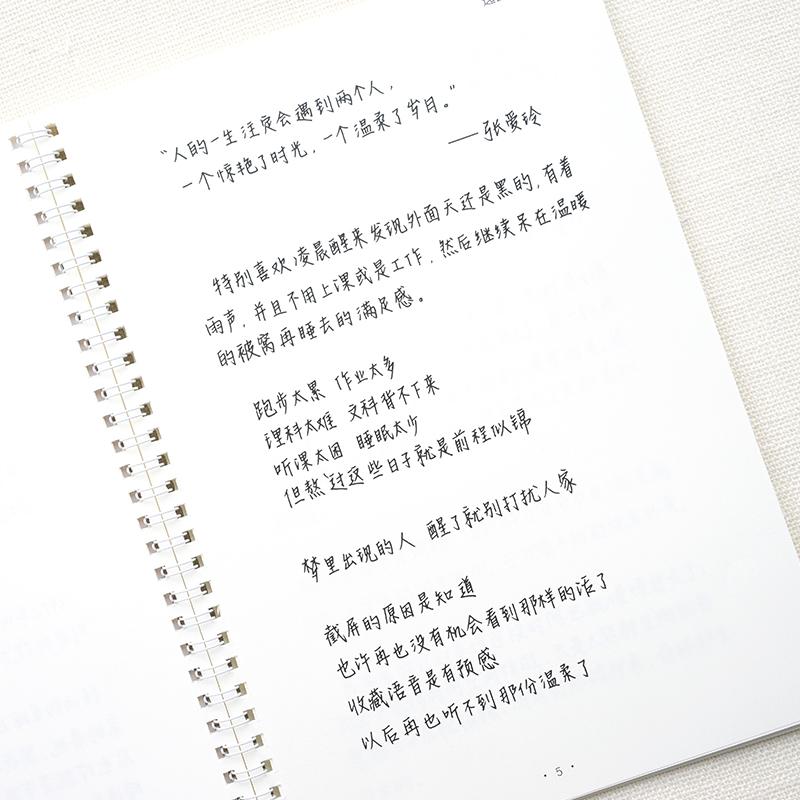 “人的一生注定会遇到两个人，
一个惊艳了时光，一个温柔了岁月。”
——张爱玲
特别喜欢凌晨醒来发现外面天还是黑的，有着
雨声，并且不用上课或是工作，然后继续呆在温暖
的被窝再睡去的满足感。
跑步太累 作业太多
理科太难 文科背不下来
听课太困 睡眠太少
但熬过这些日子就是前程似锦
梦里出现的人 醒了就别打扰人家
截屏的原因是知道
也许再也没有机会看到那样的话了
收藏语音是有预感
以后再也听不到那份温柔了
· 5 ·